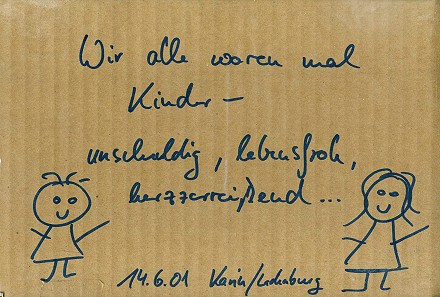 Wir alle waren mal
Kinder –
unschuldig, lebensfroh,
herzzerreißend ...
14.6.01 Karin/